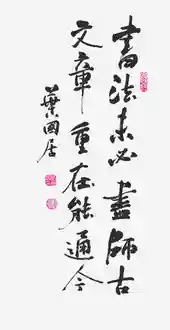 書法未必盡師古
文章重在能通今
葉國居